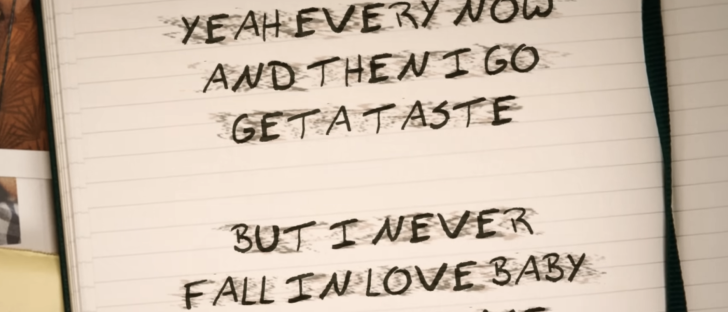 YEAH EVERY NOW
AND THEN I GO
GET A TASTE
BUT I NEVER
FALL IN LOVE BABY